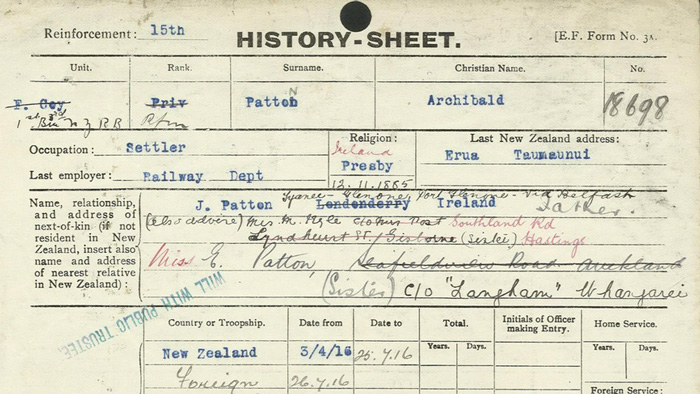 Reinforcement: 15th
HISTORY-SHEET.
[E.F. Form No. 3A.
Unit. Rank. Surname. Christian Name. No.
F. Coy Priv Patton Archibald 18698
N
1st Bn 3rd N Z R B Rfm
Occupation: Settler
Last employer: Railway Dept
Religion:
Ireland
Presby
12.11.1885
Last New Zealand address:
Erua Taumaunui
Name, relationship, and address of next-of-kin (if not resident in New Zealand, insert also name and address of nearest relative in New Zealand):
Glenone Port Glenone Via Belfast
J. Patton Londonderry Ireland Father.
(also advise) Mrs. M. Hyle c/o His Post Southland Rd
Lyndhurst St/ Gisborne (sister) Hastings
Miss E. Patton, Seafieldview Road Auckland
(Sister) C/o "Langham" Whangarei
WILL WITH PUBLIC TRUSTEE
Country or Troopship. Date from Date to Total. Initials of Officer making Entry. Home Service.
Years. Days. Years. Days.
New Zealand 3/4/16 25.7.16
Foreign 26.7.16
Foreign Service: